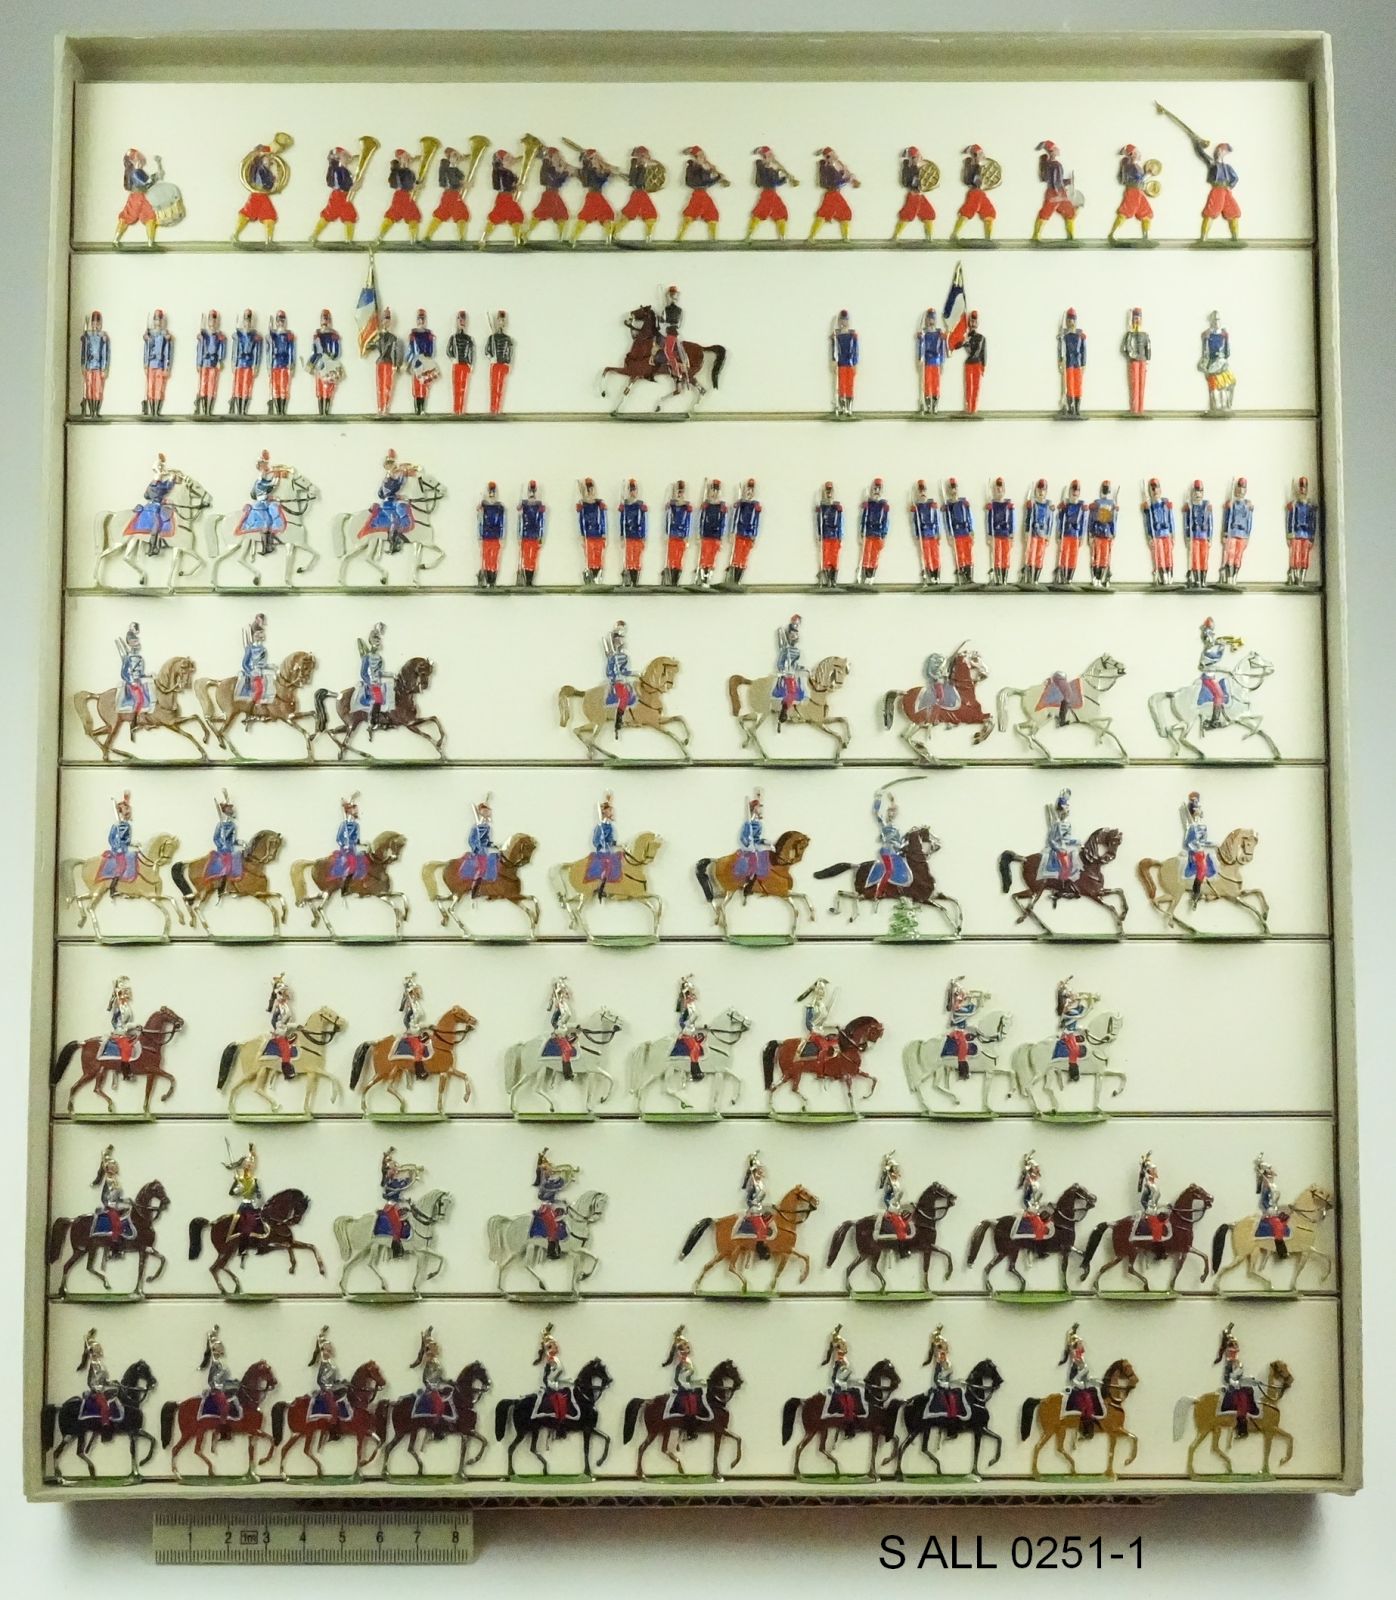 1 2 1m 3 4 5 6 7 8
S ALL 0251-1